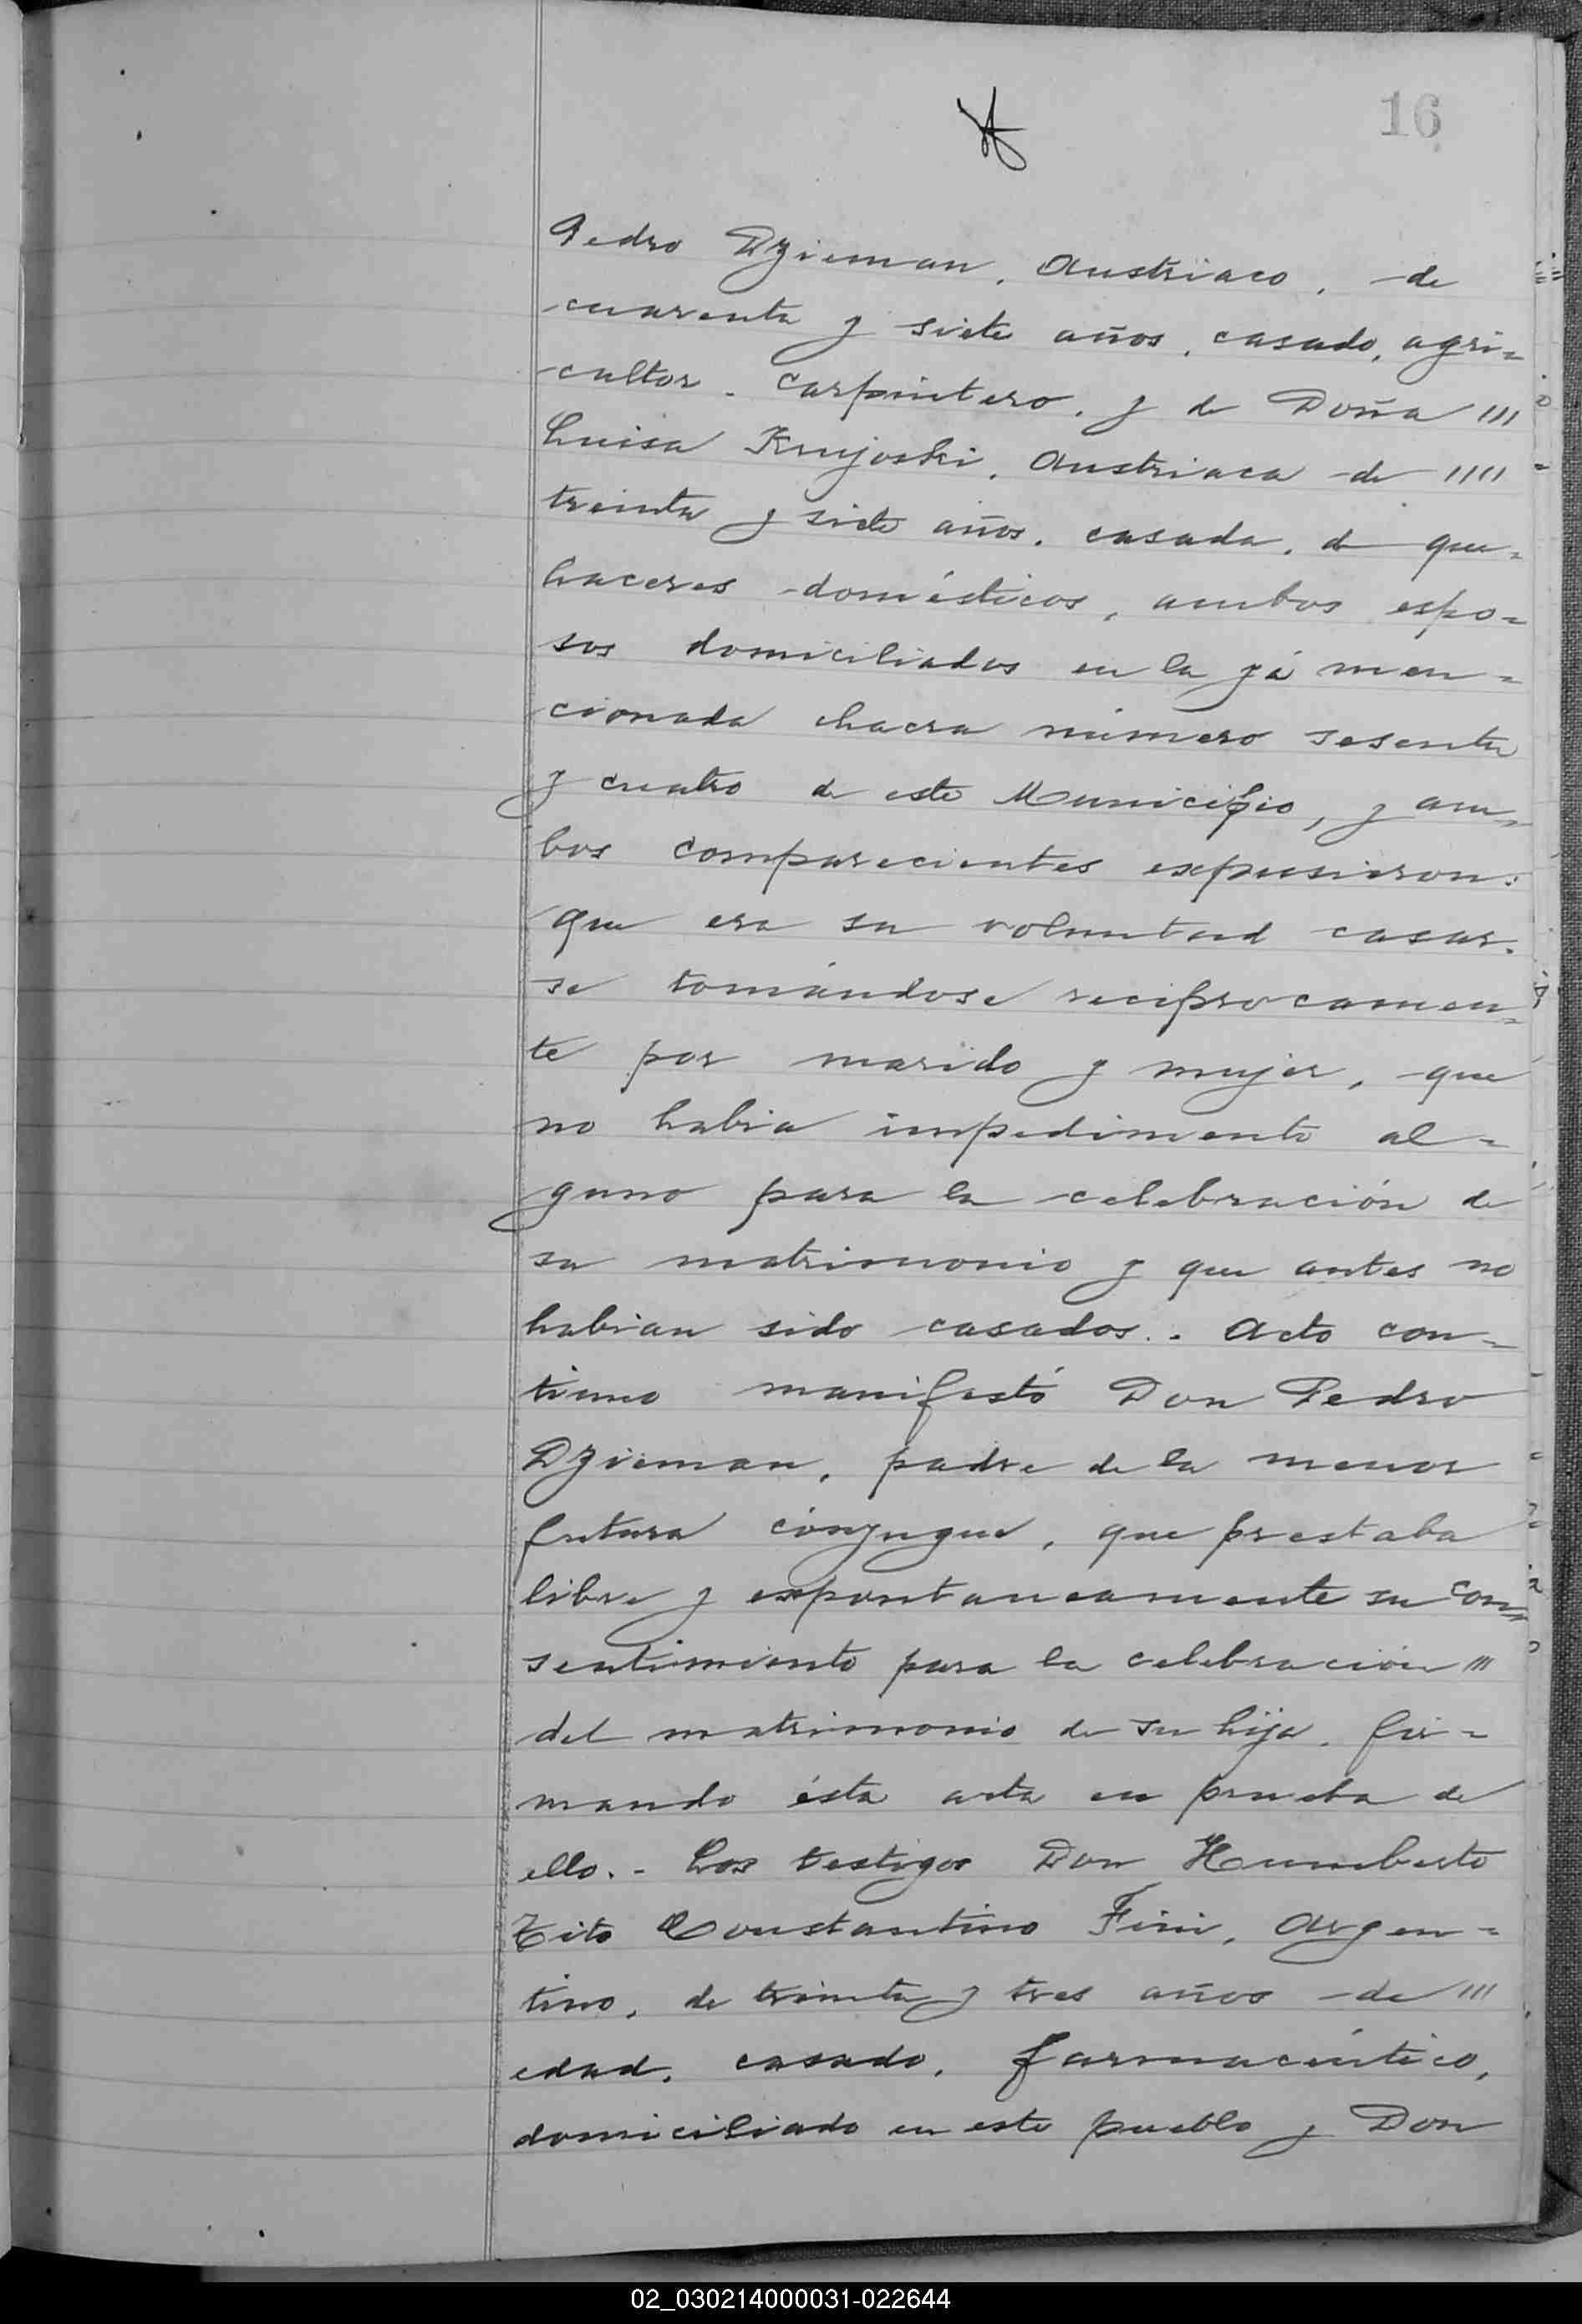 16
Pedro Dzieman, Austriaco, de
cuarenta y siete años, casado, agri=
cultor - carpintero, y de Doña '''
Luisa Krujoski, Austriaca de ''''
treinta y siete años, casada, de que=
haceres domésticos, ambos espo=
sos domiciliados en la yá men=
cionada chacra número sesenta
y cuatro de este Municipio, y am=
bos comparecientes expusieron:
que era su voluntad casar=
se tomándose reciprocamen=
te por marido y mujer, que
no habia impedimento al=
guno para la celebración de
su matrimonio y que antes no
habian sido casados.- Acto con=
tinuo manifestó Don Pedro
Dzieman, padre de la menor
futura cónyugue, que prestaba
libre y expontaneamente su con=
sentimiento para la celebración '''
del matrimonio de su hija, fir=
mando ésta acta en prueba de
ello.- Los testigos Don Humberto
Tito Constantino Fini, Argen=
tino, de treinta y tres años de '''
edad, casado, farmacéutico,
domiciliado en este pueblo y Don
02_030214000031-022644